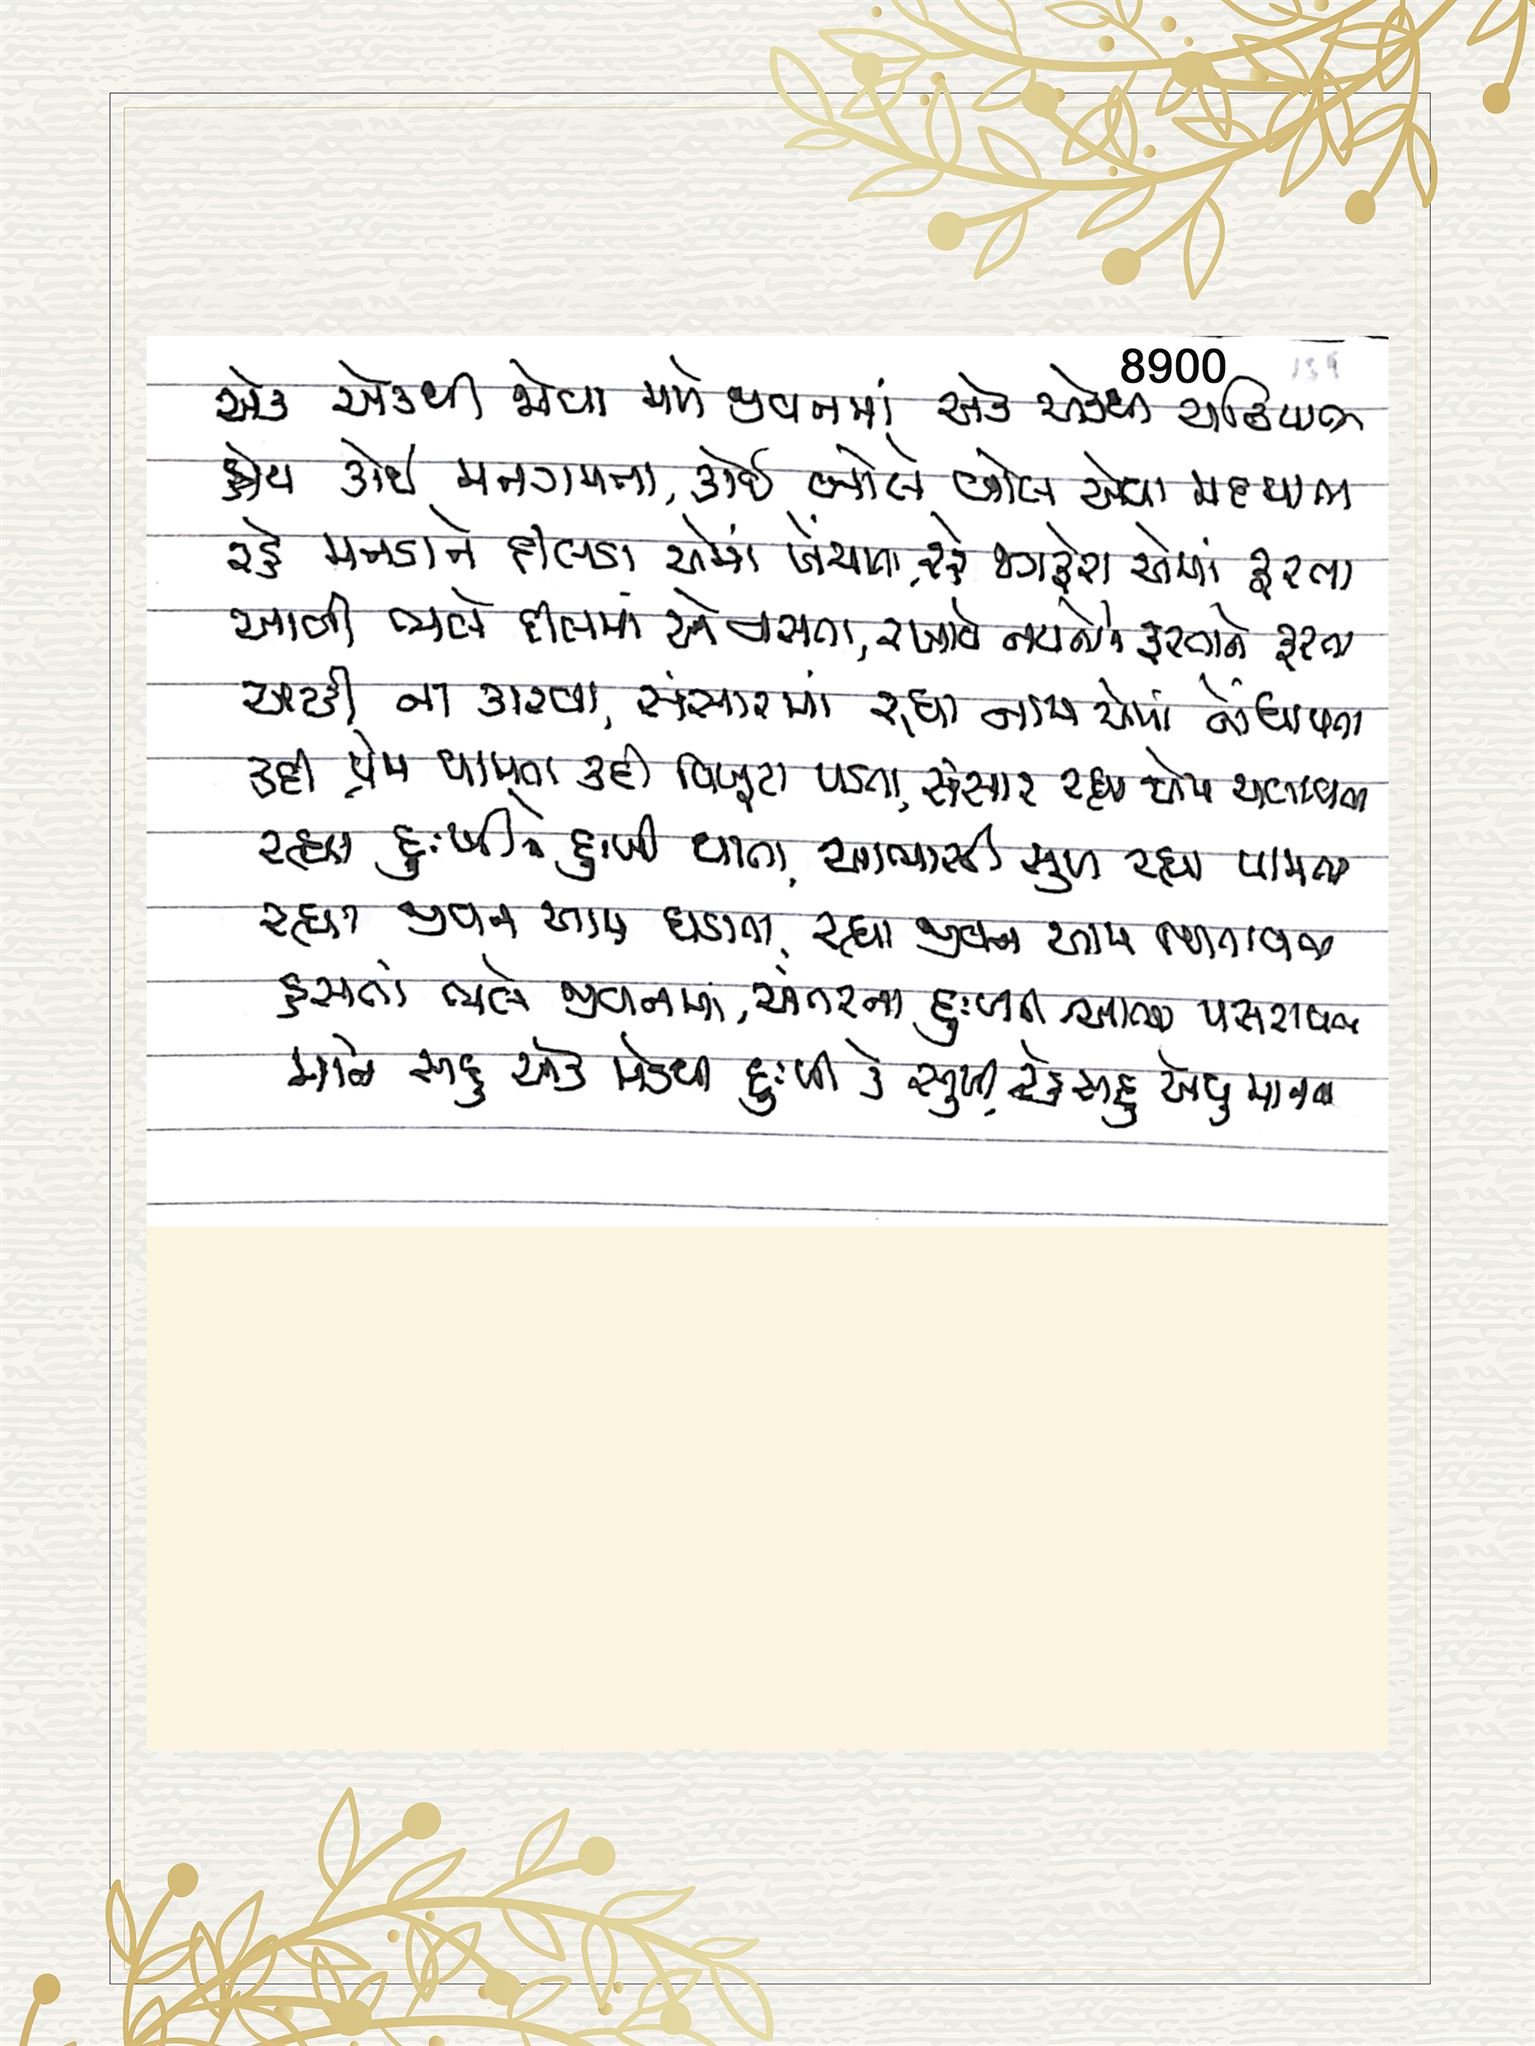 8900
એક એકથી જોવા મળે જીવનમાં એક એકથી ચડિયાતા
હોય કોઈ મનગમતા, કોઈ બોલે બોલ એવા મદમાતા
રહે મનડાને દીલડા એમાં ખેંચાતા, રહે જગ એમાં ફરતા
આવી ભલે દીલમાં એ વસતા, રખાવે નયનોને ફરતાને ફરતા
અટકી ના કારવા, સંસારમાં રહ્યા નામ એમાં નોંધાવતા
કદી પ્રેમ પામતા કદી વિખૂટા પડતા, સંસાર રહ્યા એમ ચલાવતા
રહ્યા દુઃખીને દુઃખી થાતા, આભાસી સુખ રહ્યા પામતા
રહ્યા જીવન આમ ઘડાતા, રહ્યા જીવન આમ વિતાવતા
હસતાં ભલે જીવનમાં, અંતરના દુઃખને પસરાવતા
માને સહુ એક મેકથી દુઃખી કે સુખી, રહે સહુ એવું માનતા